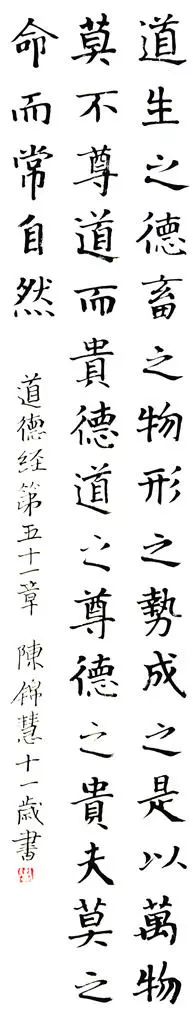 道生之德畜之物形之勢成之是以萬物
莫不尊道而貴德道之尊德之貴夫莫之
命而常自然
道德經第五十一章 陳錦慧十一歲書